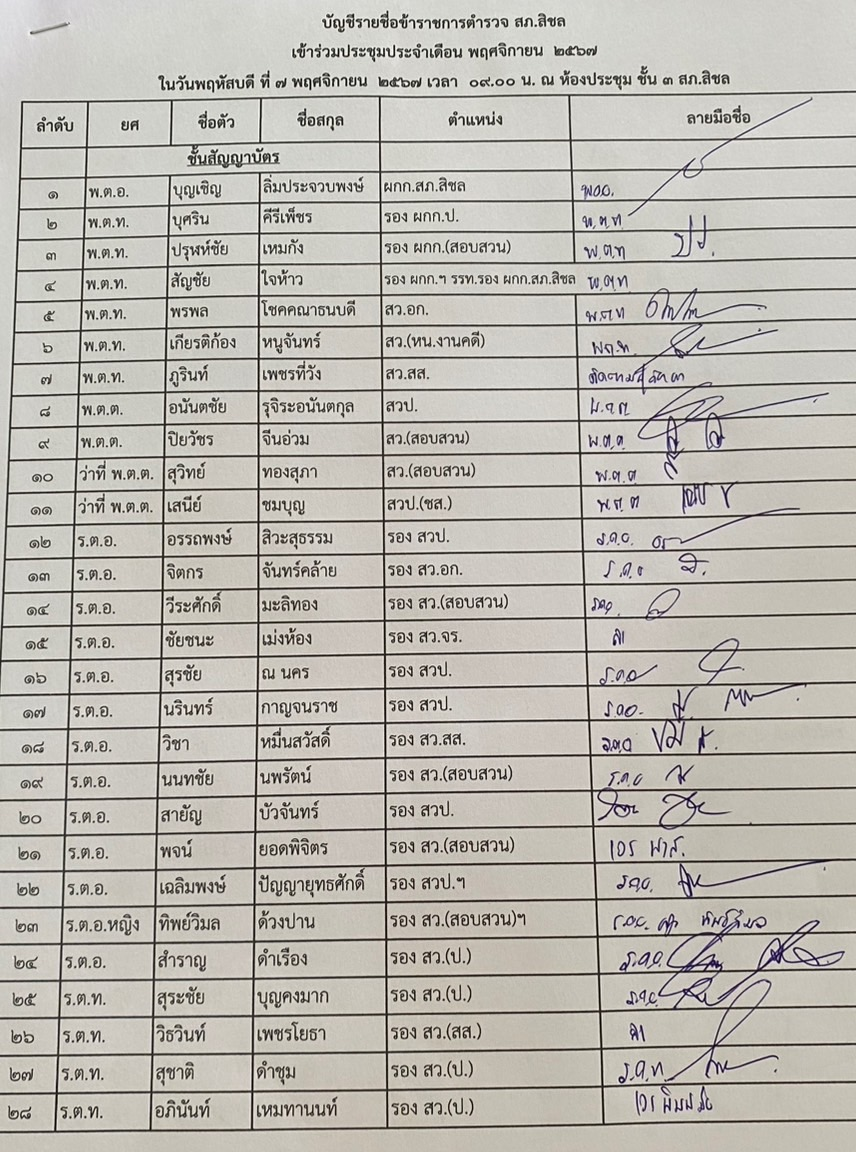 บัญชีรายชื่อข้าราชการตำรวจ สภ.สิชล
เข้าร่วมประชุมประจำเดือน พฤศจิกายน ๒๕๖๗
ในวันพฤหัสบดี ที่ ๗ พฤศจิกายน ๒๕๖๗ เวลา ๐๙.๐๐ น. ณ ห้องประชุม ชั้น ๓ สภ.สิชล
ลำดับ ยศ ชื่อตัว ชื่อสกุล ตำแหน่ง ลายมือชื่อ
ชั้นสัญญาบัตร
๑ พ.ต.อ. บุญเชิญ ลิ่มประจวบพงษ์ ผกก.สภ.สิชล พ.ต.อ.
๒ พ.ต.ท. บุศริน คีรีเพ็ชร รอง ผกก.ป. พ.ต.ท.
๓ พ.ต.ท. ปรุฬห์ชัย เหมกัง รอง ผกก.(สอบสวน) พ.ต.ท
๔ พ.ต.ท. สัญชัย ใจห้าว รอง ผกก.ฯ รรท.รอง ผกก.สภ.สิชล พ.ต.ท
๕ พ.ต.ท. พรพล โชคคณาธนบดี สว.อก. พ.ต.ท
๖ พ.ต.ท. เกียรติก้อง หนูจันทร์ สว.(หน.งานคดี) พ.ต.ท.
๗ พ.ต.ท. ภูรินท์ เพชรที่วัง สว.สส.
๘ พ.ต.ต. อนันตชัย รุจิระอนันตกุล สวป. พ.ต.ต
๙ พ.ต.ต. ปิยวัชร จีนอ่วม สว.(สอบสวน) พ.ต.ต
๑๐ ว่าที่ พ.ต.ต. สุวิทย์ ทองสุภา สว.(สอบสวน) พ.ต.ต
๑๑ ว่าที่ พ.ต.ต. เสนีย์ ชมบุญ สวป.(ชส.) พ.ต.ต
๑๒ ร.ต.อ. อรรถพงษ์ สิวะสุธรรม รอง สวป. ร.ต.อ.
๑๓ ร.ต.อ. จิตกร จันทร์คล้าย รอง สว.อก. ร.ต.อ
๑๔ ร.ต.อ. วีระศักดิ์ มะลิทอง รอง สว.(สอบสวน) รตอ.
๑๕ ร.ต.อ. ชัยชนะ เม่งห้อง รอง สว.จร. ลา
๑๖ ร.ต.อ. สุรชัย ณ นคร รอง สวป. ร.ต.อ
๑๗ ร.ต.อ. นรินทร์ กาญจนราช รอง สวป. ร.ตอ.
๑๘ ร.ต.อ. วิชา หมื่นสวัสดิ์ รอง สว.สส. ร.ต.อ
๑๙ ร.ต.อ. นนทชัย นพรัตน์ รอง สว.(สอบสวน) ร.ต.อ
๒๐ ร.ต.อ. สายัญ บัวจันทร์ รอง สวป.
๒๑ ร.ต.อ. พจน์ ยอดพิจิตร รอง สว.(สอบสวน) เวร
๒๒ ร.ต.อ. เฉลิมพงษ์ ปัญญายุทธศักดิ์ รอง สวป.ฯ ร.ต.อ.
๒๓ ร.ต.อ.หญิง ทิพย์วิมล ด้วงปาน รอง สว.(สอบสวน)ฯ ร.ต.อ. ทิพย์วิมล
๒๔ ร.ต.อ. สำราญ ดำเรือง รอง สว.(ป.) ร.ต.อ.
๒๕ ร.ต.ท. สุระชัย บุญคงมาก รอง สว.(ป.)
๒๖ ร.ต.ท. วิธวินท์ เพชรโยธา รอง สว.(สส.) ลา
๒๗ ร.ต.ท. สุชาติ ดำชุม รอง สว.(ป.) ร.ต.ท
๒๘ ร.ต.ท. อภินันท์ เหมทานนท์ รอง สว.(ป.) เวร